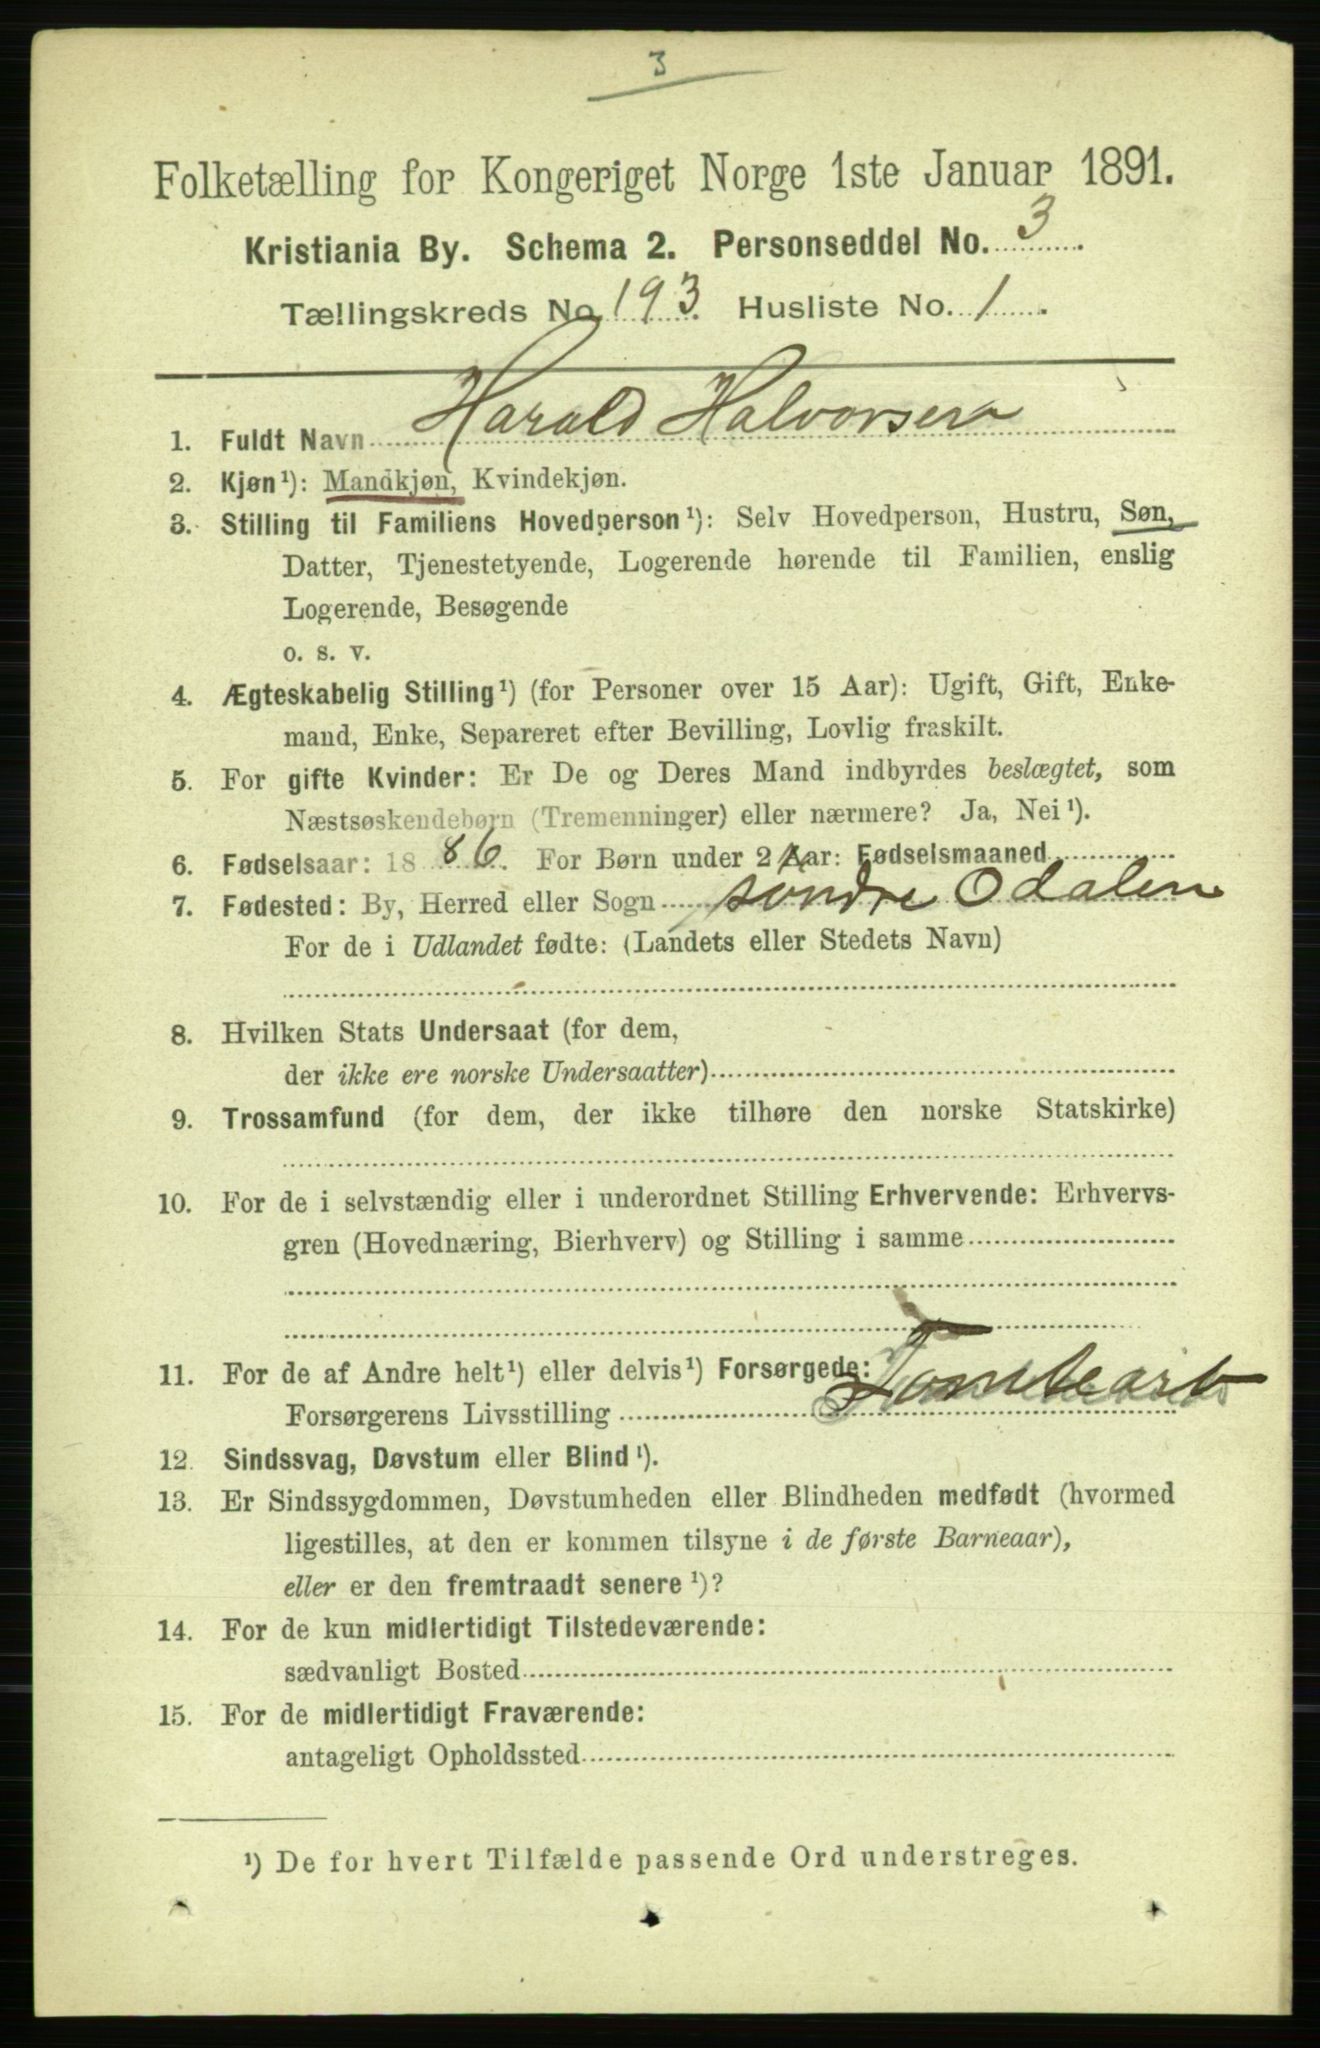 3
Folketælling for Kongeriget Norge 1ste Januar 1891.
Kristiania By. Schema 2. Personseddel No. 3
Tællingskreds No. 193. Husliste No. 1
1. Fuldt Navn Harald Halvorsen
2. Kjøn¹): Mandkjøn, Kvindekjøn.
3. Stilling til Familiens Hovedperson¹): Selv Hovedperson, Hustru, Søn,
Datter, Tjenestetyende, Logerende hørende til Familien, enslig
Logerende, Besøgende
o. s. v.
4. Ægteskabelig Stilling¹) (for Personer over 15 Aar): Ugift, Gift, Enke-
mand, Enke, Separeret efter Bevilling, Lovlig fraskilt.
5. For gifte Kvinder: Er De og Deres Mand indbyrdes beslægtet, som
Næstsøskendebørn (Tremenninger) eller nærmere? Ja, Nei¹).
6. Fødselsaar: 1886. For Børn under 2 Aar: Fødselsmaaned
7. Fødested: By, Herred eller Sogn søndre Odalen
For de i Udlandet fødte: (Landets eller Stedets Navn)
8. Hvilken Stats Undersaat (for dem,
der ikke ere norske Undersaatter)
9. Trossamfund (for dem, der ikke tilhøre den norske Statskirke)
10. For de i selvstændig eller i underordnet Stilling Erhvervende: Erhvervs-
gren (Hovednæring, Bierhverv) og Stilling i samme
11. For de af Andre helt¹) eller delvis¹) Forsørgede:
Forsørgerens Livsstilling Tomtearb
12. Sindssvag, Døvstum eller Blind¹).
13. Er Sindssygdommen, Døvstumheden eller Blindheden medfødt (hvormed
ligestilles, at den er kommen tilsyne i de første Barneaar),
eller er den fremtraadt senere¹)?
14. For de kun midlertidigt Tilstedeværende:
sædvanligt Bosted
15. For de midlertidigt Fraværende:
antageligt Opholdssted
¹) De for hvert Tilfælde passende Ord understreges.